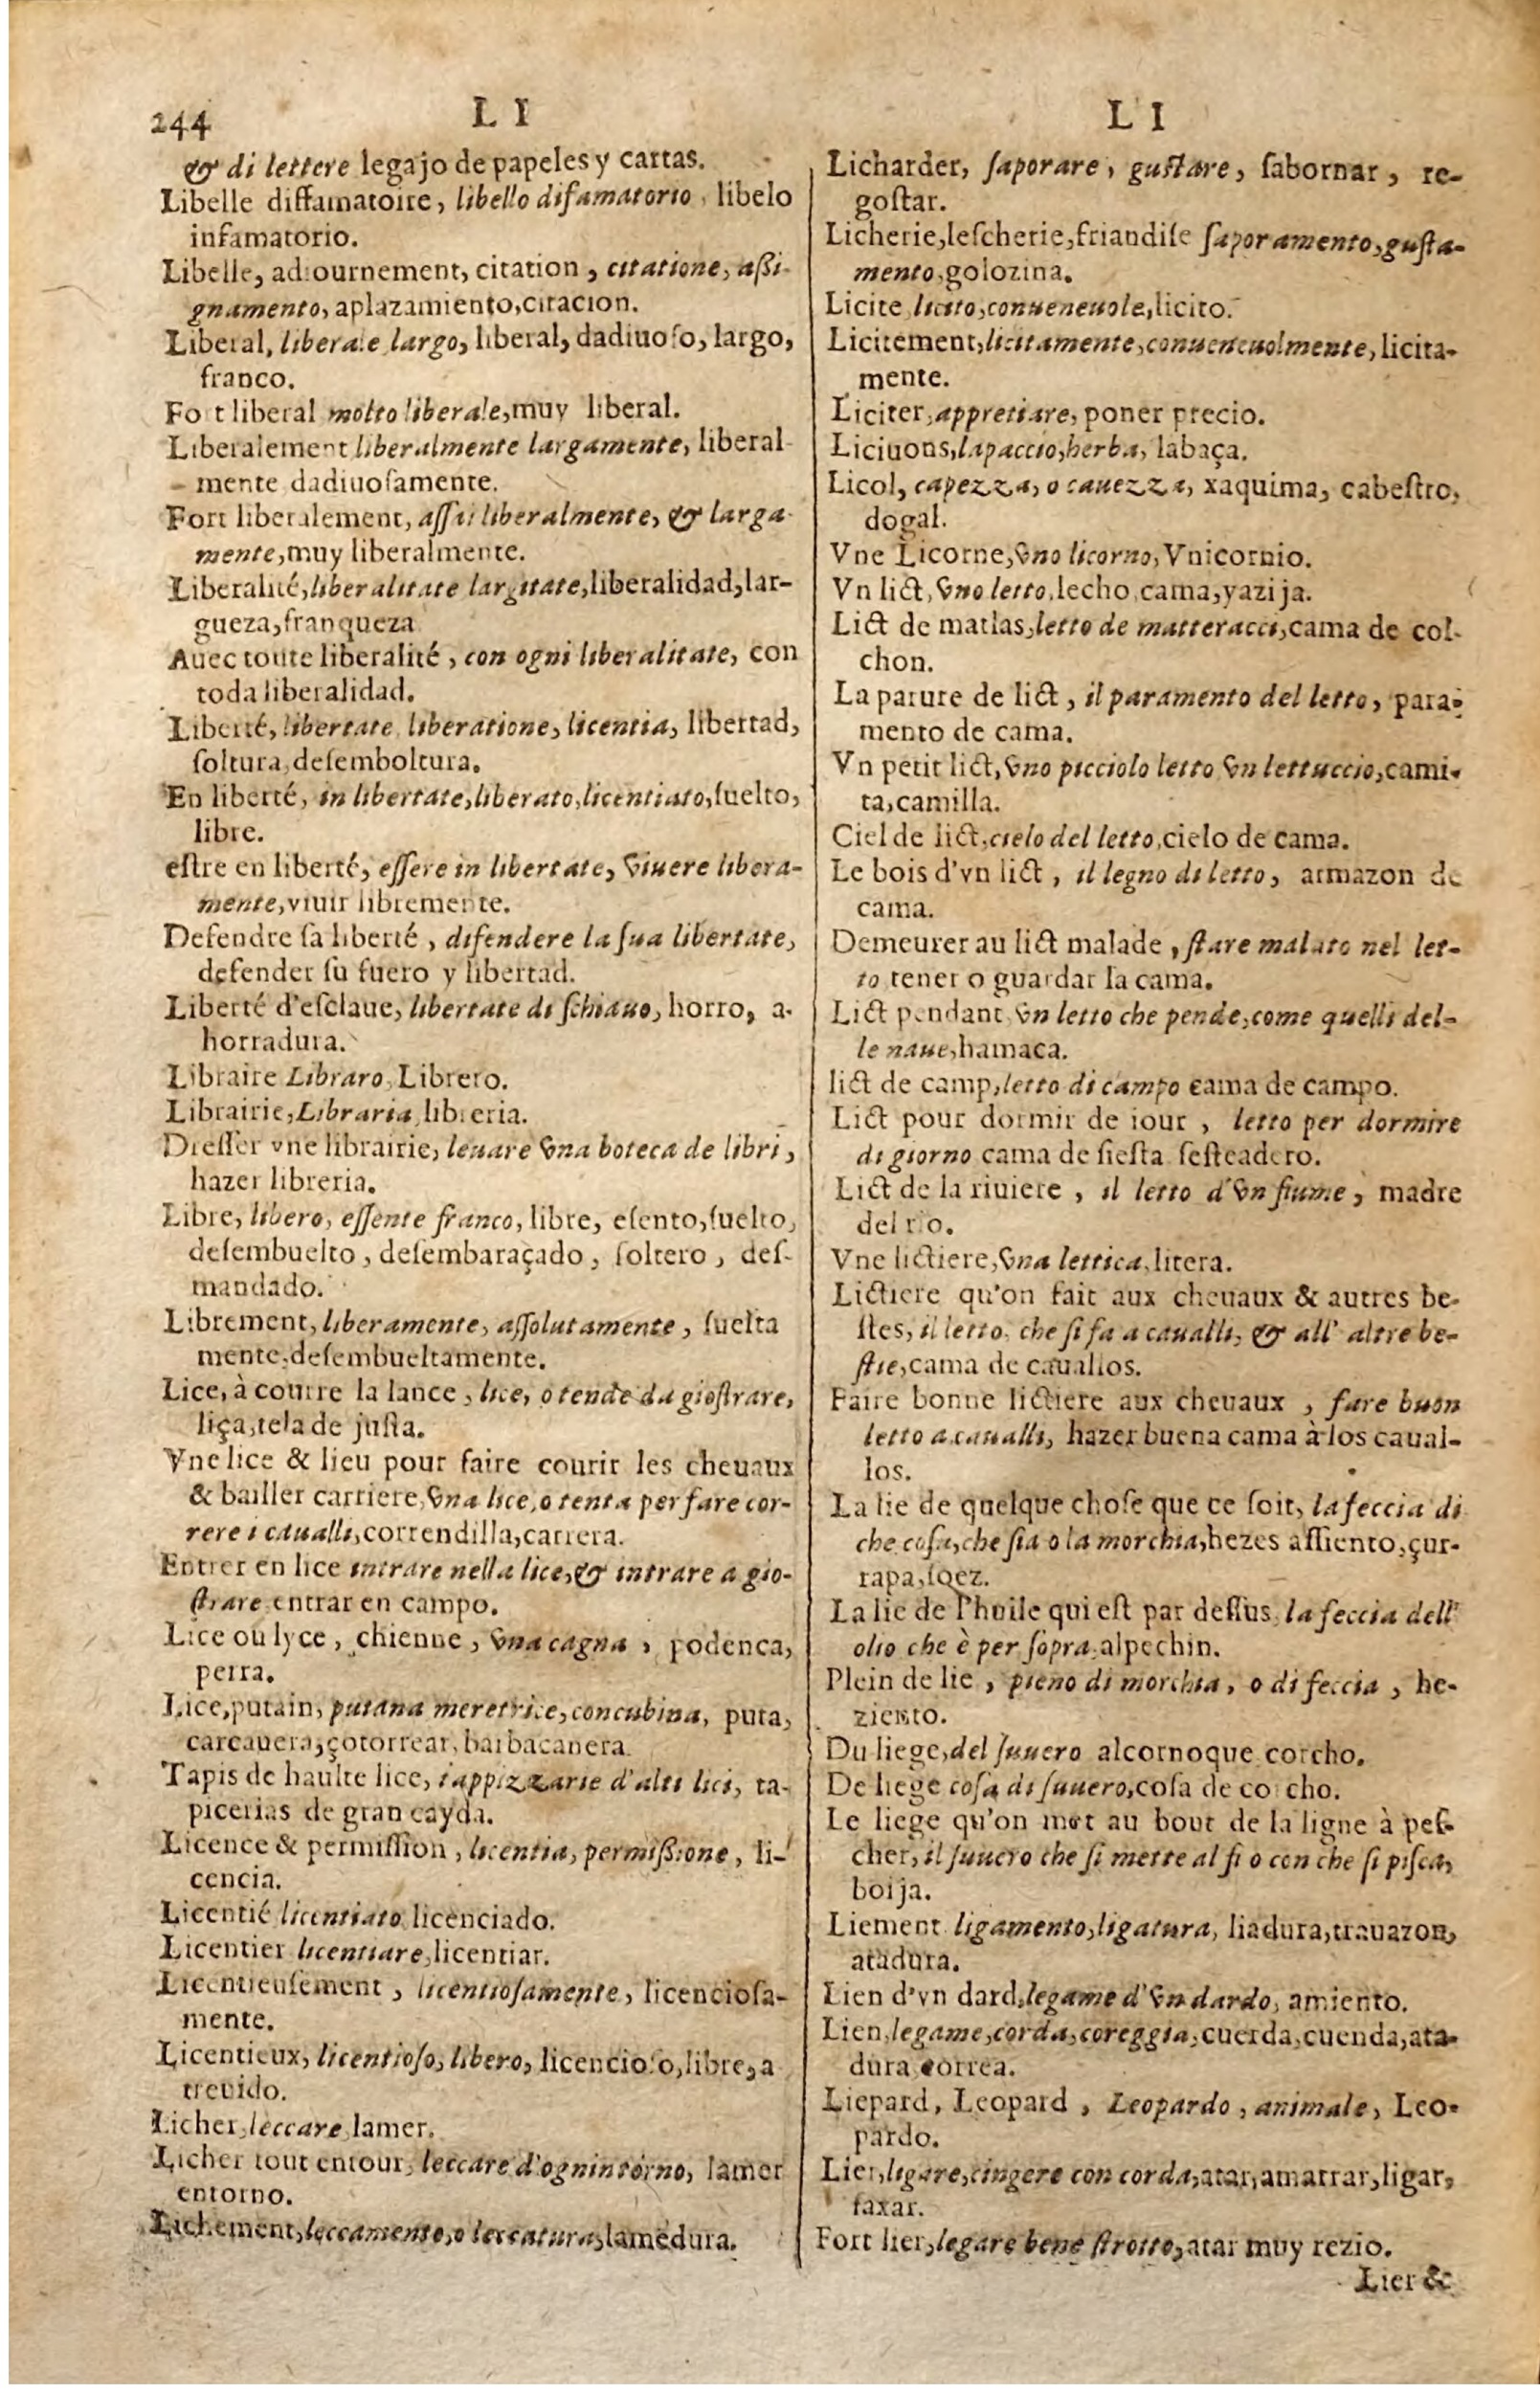 244
L I
& di lettere legajo de papeles y cartas.
Libelle diffamatoire, libello difamatorio, libelo
infamatorio.
Libelle, adiournement, citation, citatione, aßi-
gnamento, aplazamiento,citacion.
Liberal, liberale largo, liberal, dadiuoſo, largo,
franco.
Fo t liberal molto liberale,muy liberal.
Liberalement liberalmente largamente, liberal-
mente dadiuoſamente.
Fort liberalement, aſſai liberalmente, & larga-
mente,muy liberalmente.
Liberalité,liberalitate largitate,liberalidad,lar-
gueza,franqueza
Auec toute liberalité, con ogni liberalitate, con
toda liberalidad.
Liberté, libertate liberatione, licentia, libertad,
ſoltura,deſemboltura.
En liberté, in libertate,liberato,licentiato,ſuelto,
libre.
eſtre en liberté, eſſere in libertate, viuere libera-
mente,viuir libremente.
Defendre ſa liberté, difendere la ſua libertate,
defender ſu fuero y libertad.
Liberté d'eſclaue, libertate di ſchiauo, horro, a-
horradura.
Libraire Libraro, Librero.
Librairie,Libraria,libreria.
Dreſſer vne librairie, leuare vna boteca de libri,
hazer libreria.
Libre, libero, eſſente franco, libre, eſento,ſuelto,
deſembuelto, deſembaraçado, ſoltero, deſ-
mandado.
Librement, liberamente, aſſolutamente, ſuelta
mente,deſembueltamente.
Lice, à courre la lance, lice, o tende da gioſtrare,
liça,tela de juſta.
Vne lice & lieu pour faire courir les cheuaux
& bailler carriere,vna lice,o tenta per fare cor-
rere i caualli,correndilla,carrera.
Entrer en lice intrare nella lice,& intrare a gio-
ſtrare entrar en campo.
Lice ou lyce, chienne, vna cagna, podenca,
perra.
Lice,putain, putana meretrice,concubina, puta,
carcauera,çotorrear,barbacanera.
Tapis de haulte lice, tappizzarie d'alti lici, ta-
picerias de gran cayda.
Licence & permiſſion, licentia, permißione, li-
cencia.
Licentié licentiato licenciado.
Licentier licentiare,licentiar.
Licentieuſement, licentioſamente, licencioſa-
mente.
Licentieux, licentioſo, libero, licencioſo,libre,a
treuido.
Licher,leccare,lamer.
Licher tout entour, leccare d'ognintorno, lamer
entorno.
Lichement,leccamento,o leccatura,lamedura.
L I
Licharder, ſaporare, guſtare, ſabornar, re-
goſtar.
Licherie,leſcherie,friandiſe ſaporamento,guſta-
mento,golozina.
Licite licito,conueneuole,licito.
Licitement,licitamente,conueneuolmente,licita-
mente.
Liciter,appretiare, poner precio.
Liciuons,lapaccio,herba, labaça.
Licol, capezza, o cauezza, xaquima, cabeſtro,
dogal.
Vne Licorne,vno licorno,Vnicornio.
Vn lict,vno letto,lecho,cama,yazija.
Lict de matlas,letto de matteracci,cama de col-
chon.
La parure de lict, il paramento del letto, para-
mento de cama.
Vn petit lict,vno picciolo letto vn lettuccio,cami-
ta,camilla.
Ciel de lict,cielo del letto,cielo de cama.
Le bois d'vn lict, il legno di letto, armazon de
cama.
Demeurer au lict malade, ſtare malato nel let-
to tener o guardar la cama.
Lict pendant,vn letto che pende,come quelli del-
le naue,hamaca.
lict de camp,letto di campo cama de campo.
Lict pour dormir de iour, letto per dormire
di giorno cama de ſieſta ſeſteadero.
Lict de la riuiere, il letto d'vn fiume, madre
del rio.
Vne lictiere,vna lettica,litera.
Lictiere qu'on fait aux cheuaux & autres be-
ſtes, il letto, che ſi fa a caualli, & all' altre be-
ſtie,cama de cauallos.
Faire bonne lictiere aux cheuaux, fare buon
letto a caualli, hazer buena cama à los caual-
los.
La lie de quelque choſe que ce ſoit, la feccia di
che coſa,che ſia o la morchia,hezes aſſiento,çur-
rapa,ſoez.
La lie de l'huile qui eſt par deſſus, la feccia dell'
olio che è per ſopra,alpechin.
Plein de lie, pieno di morchia, o di feccia, he-
ziento.
Du liege,del ſuuero alcornoque corcho.
De liege coſa di ſuuero,coſa de corcho.
Le liege qu'on met au bout de la ligne à peſ-
cher, il ſuuero che ſi mette al fi o con che ſi piſca,
boija.
Liement ligamento,ligatura, liadura,trauazon,
atadura.
Lien d'vn dard,legame d'vn dardo, amiento.
Lien,legame,corda,coreggia,cuerda,cuenda,ata-
dura correa.
Liepard, Leopard, Leopardo, animale, Leo-
pardo.
Lier,ligare,cingere con corda,atar,amarrar,ligar,
faxar.
Fort lier,legare bene ſtrotto,atar muy rezio.
Lier &